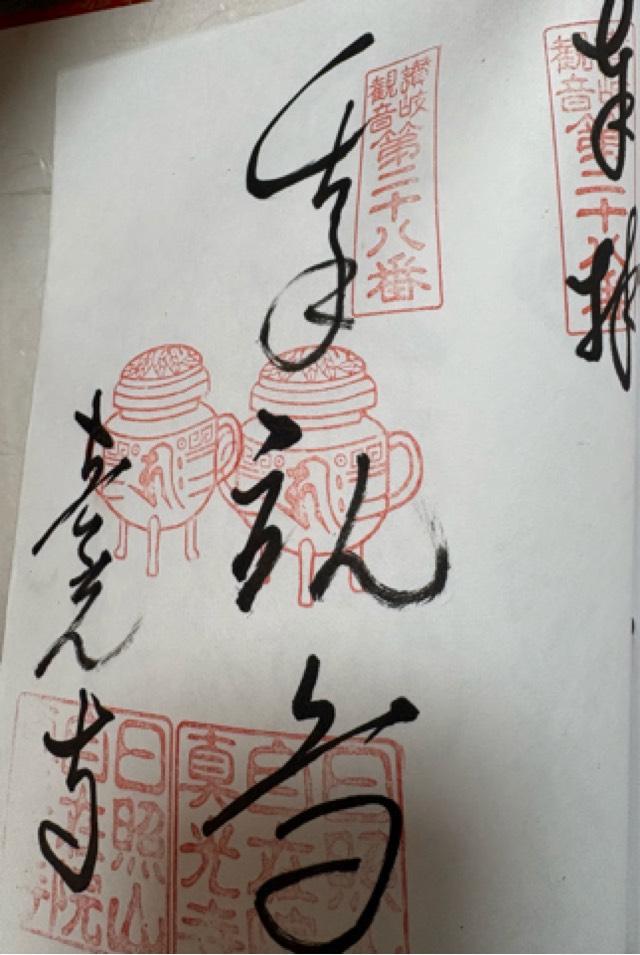 奉拝
讃岐
観音
第二十八番
讃岐
観音
第二十八番
千手観音
真光寺
日照
自在
真光寺
日照山
自在院